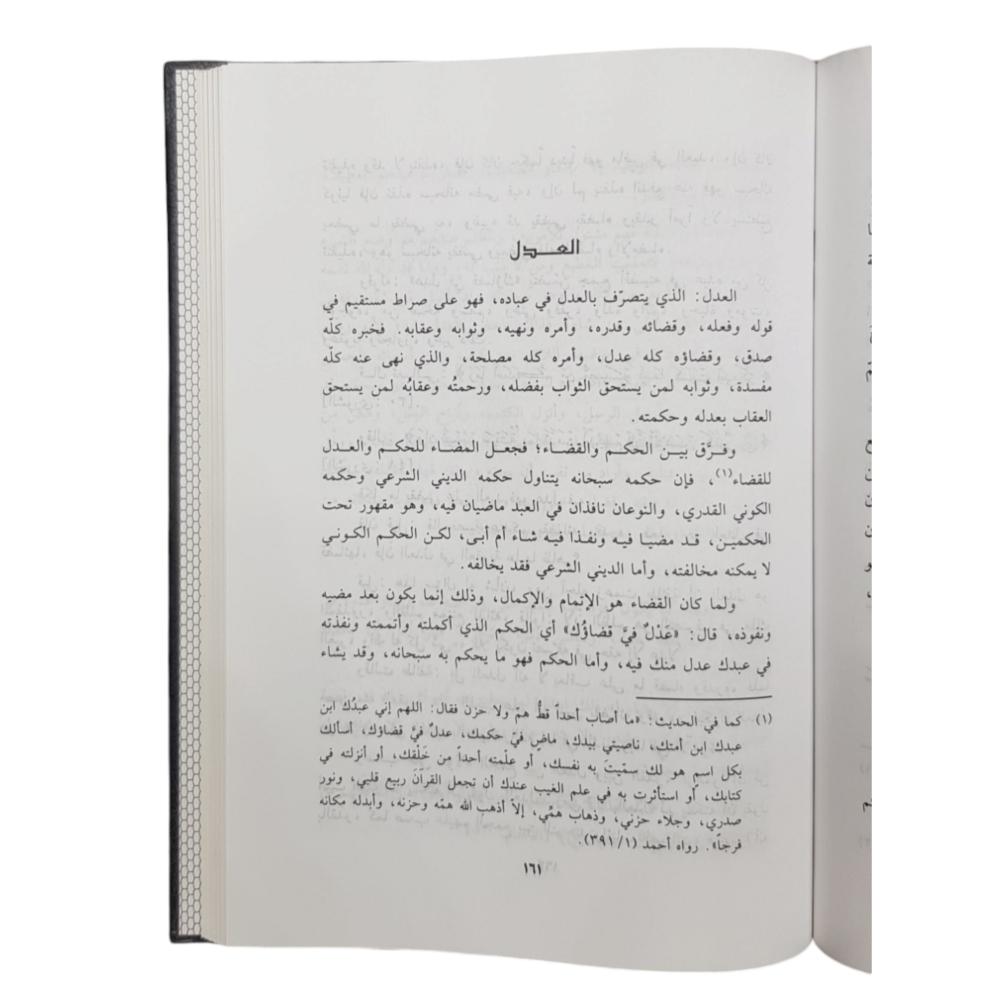 العـــدل
العدل: الذي يتصرّف بالعدل في عباده، فهو على صراط مستقيم في
قوله وفعله، وقضائه وقدره، وأمره ونهيه، وثوابه وعقابه. فخبره كلّه
صدق، وقضاؤه كله عدل، وأمره كله مصلحة، والذي نهى عنه كلّه
مفسدة، وثوابه لمن يستحق الثواب بفضله، ورحمتُه وعقابُه لمن يستحق
العقاب بعدله وحكمته.
وفرَّق بين الحكم والقضاء؛ فجعل المضاء للحكم والعدل
للقضاء(١)، فإن حكمه سبحانه يتناول حكمه الديني الشرعي وحكمه
الكوني القدري، والنوعان نافذان في العبد ماضيان فيه، وهو مقهور تحت
الحكمين، قد مضيا فيه ونفذا فيه شاء أم أبى، لكن الحكم الكوني
لا يمكنه مخالفته، وأما الديني الشرعي فقد يخالفه.
ولما كان القضاء هو الإتمام والإكمال، وذلك إنما يكون بعد مضيه
ونفوذه، قال: «عَدْلٌ فيَّ قضاؤُك» أي الحكم الذي أكملته وأتممته ونفذته
في عبدك عدل منك فيه، وأما الحكم فهو ما يحكم به سبحانه، وقد يشاء
(١) كما في الحديث: «ما أصاب أحداً قطُّ همّ ولا حزن فقال: اللهم إني عبدُك ابن
عبدك ابن أمتك، ناصيتي بيدك، ماضٍ فيّ حكمك، عدلٌ فيَّ قضاؤك، أسألك
بكل اسمٍ هو لك سمّيتَ به نفسك، أو علّمته أحداً من خَلْقك، أو أنزلته في
كتابك، أو استأثرت به في علم الغيب عندك أن تجعل القرآن ربيع قلبي، ونور
صدري، وجلاء حزني، وذهاب همّي، إلاّ أذهب الله همّه وحزنه، وأبدله مكانه
فرجاً». رواه أحمد (٣٩١/١).
١٦١